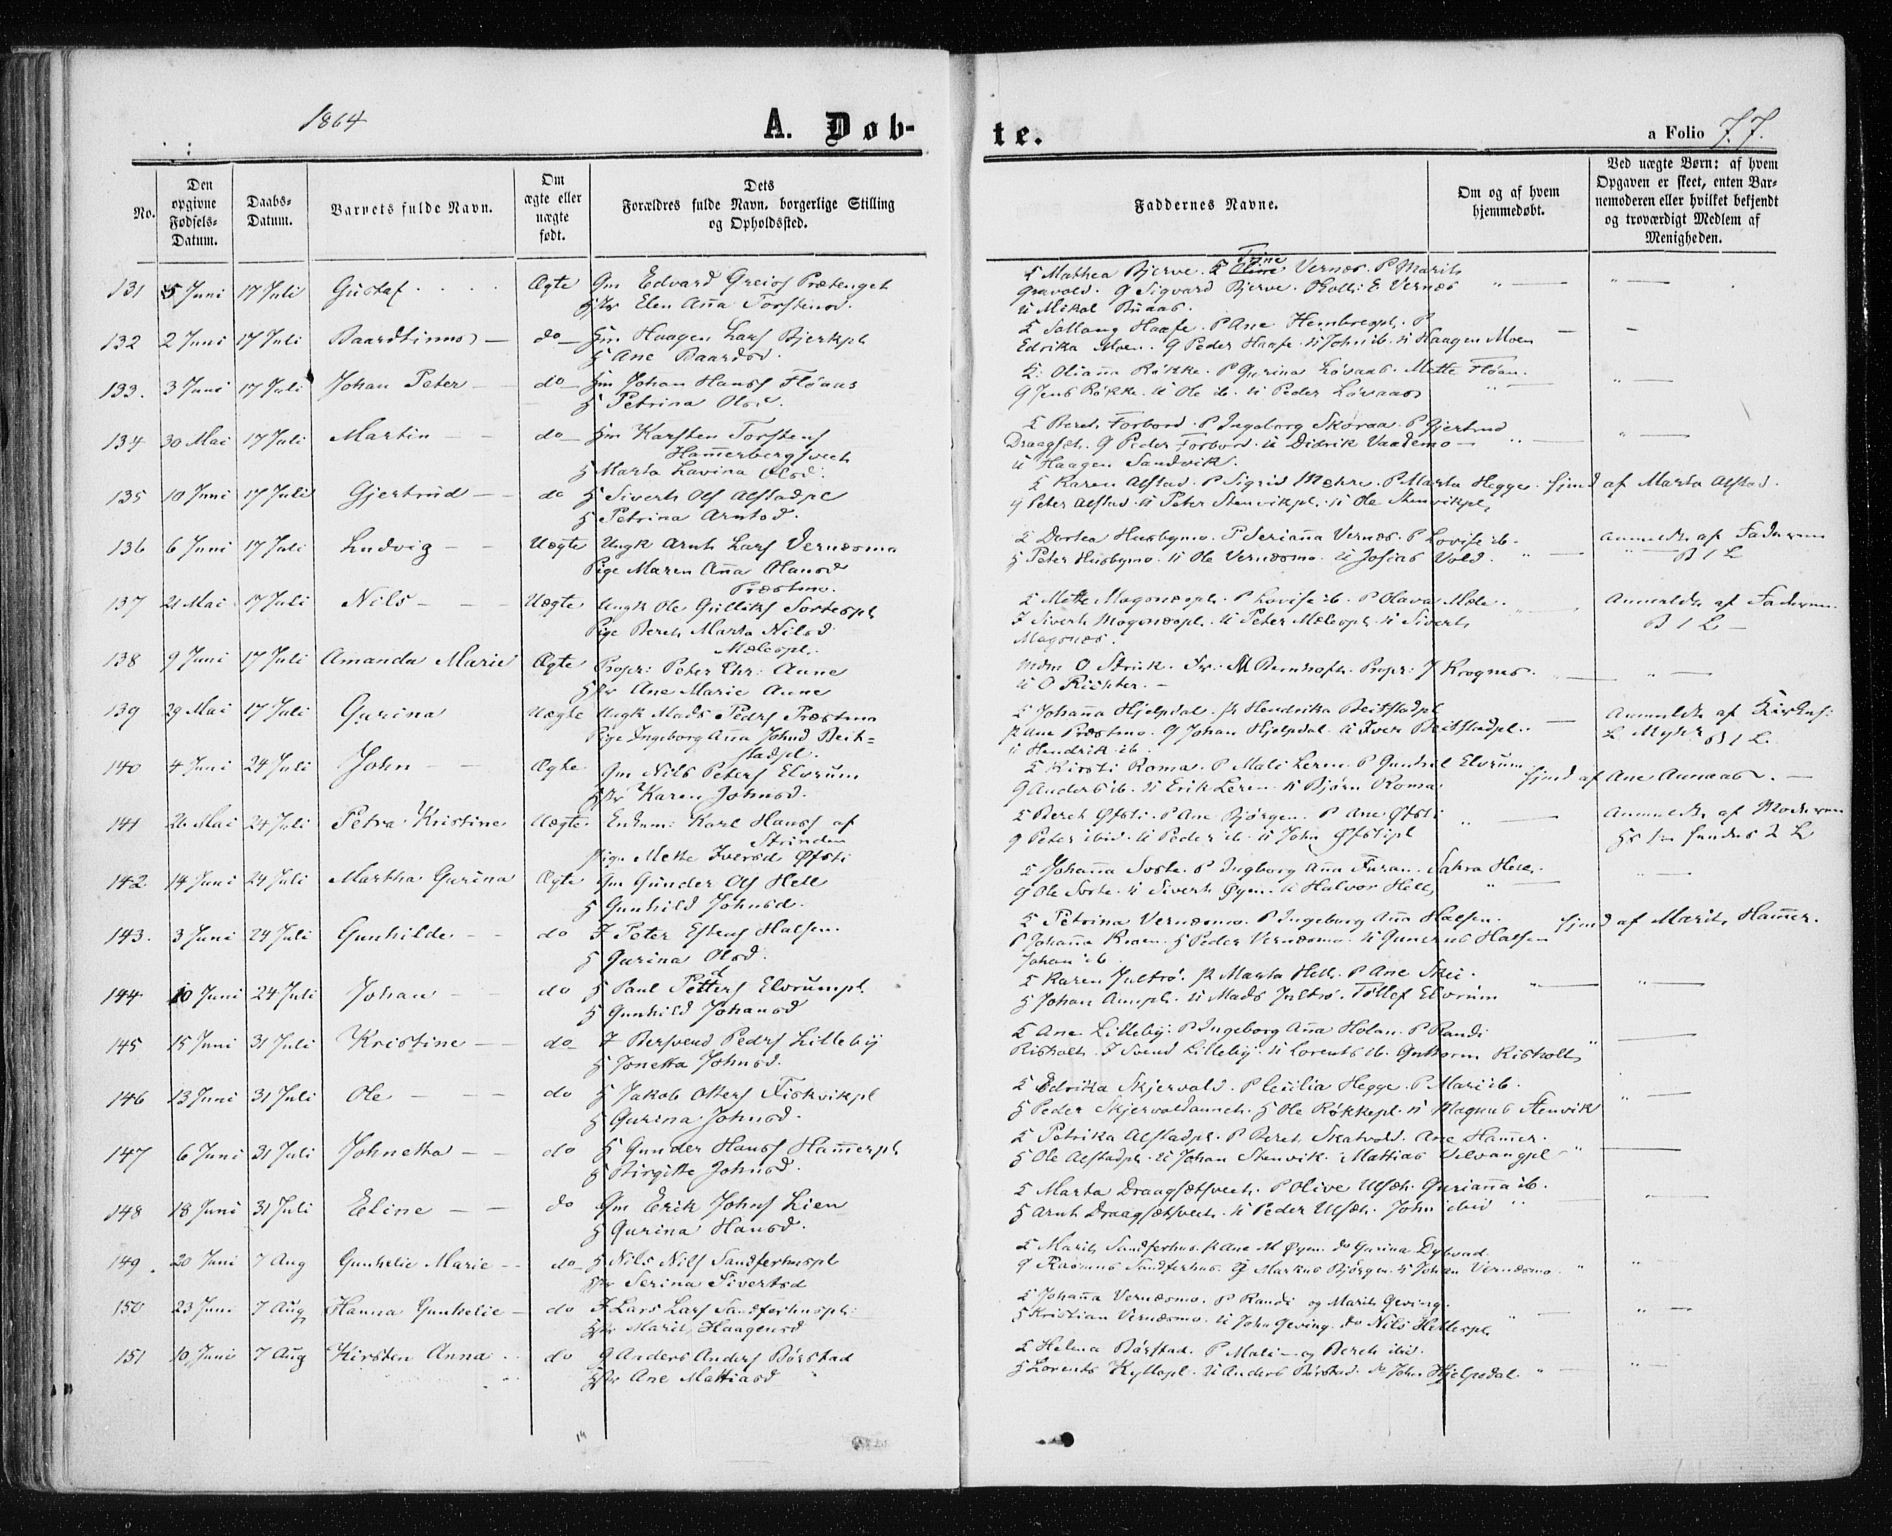 1864
A. Døb-
te.
a Folio 77.
No.
Den opgivne Fødsels-Datum.
Daabs-Datum.
Barnets fulde Navn.
Om ægte eller uægte født.
Dets Forældres fulde Navn, borgerlige Stilling og Opholdssted.
Faddernes Navne.
Om og af hvem hjemmedøbt.
Ved uægte Børn: af hvem Opgaven er skeet, enten Barnemoderen eller hvilket bekjendt og troværdigt Medlem af Menigheden.
131 5 Juni 17 Juli Gustaf Ægte Gm Edvard Greios Prætenget
Hstr Elen Anna Torstensd.
Mathea Bjerve. Tine Vernæs. P Marit
Gravold. G Sigvard Bjerve. E. Vernæs
U Mikal Buaas
132 2 Juni 17 Juli Baardtinus do Hm Haagen Lars Bjerkpl
H Ane Baardsd.
Haafe. P Ane Hembrepl. P
Edrika Moen. G Peder Haafe. U John ib. U Haagen Moen
133. 3 Juni 17 Juli Johan Peter do Hm Johan Hans Fløaas
H Petrina Olsd.
Olianna Røkke. P Gurina Løvaas. Mette Fløan.
G Jens Røkke. U Ole ib. U Peder Løvaas
134 30 Mai 17 Juli Martin do Hm Karsten Torstens
Hammerbergsvect
H Marta Lavina Olsd.
Beret Forbord. P Ingeborg Skøraa. P Gjertrud
Draagset. G Peder Forbord. U Didrik Vaademo
U Haagen Sandvik.
135 10 Juni 17 Juli Gjertrud do H Sivert Ols Alstadpl
H Petrina Arntsd.
Karen Alstad. P Sigrid Mæhre. P Marta Hegge. Hjmd af Marta Alstad.
G Peter Alstad. U Peter Stenvikpl. U Ole Stenvikpl.
136 6 Juni 17 Juli Ludvig Uægte Ungk Arnt Lars Vernæsmo
Pige Maren Anna Olausd
Præstmo.
Dortea Husbymo. P Serianna Vernæs. P Lovise ib. Anmeldt af Faderen
H Peter Husbymo. U Ole Vernæsmo. U Josias Vold. B 1 L
137 21 Mai 17 Juli Nils Uægte Ungk Ole Gulliks Sortespl
Pige Beret Marta Nilsd
Mælespl.
Mette Magnæspl. P Lovise ib. P Olava Mæle. Anmeldt af Faderen
I Sivert Magnæspl. U Peter Mælespl. U Sivert B 1 L
Magnæs.
138 9 Juni 17 Juli Amanda Marie Ægte Propr: Peter Chr: Aune
Hstr Ane Marie Aune
Mdm O Strik. Fr: M Bernhoft. Propr: J Krognes.
U O Richter.
139 29 Mai 17 Juli Gurina Uægte Ungk Mads Peders Præstmo
Pige Ingeborg Anna Johnsd Beit=
stadpl.
Johanna Hjelpdal. P Hendrika Beitstadpl. Anmeldt af Kirkes:
P Ane Præstmo. G Johan Hjelpdal. U Iver Beitstadpl. L. Myhr B 1 L.
U Hendrik ib.
140 4 Juni 24 Juli John Ægte Gm Nils Peters Elvrum
Hstr Karen Johnsd.
Kirsti Roma. P Mali Leren. P Gunhil Elvrum. Hjmd af Ane Aunaas.
G Anders ib. U Erik Leren. U Bjørn Roma
141 26 Mai 24 Juli Petra Kristine Uægte Enkem: Karl Hans af
Strinden
Pige Mette Iversd Øfsti
Beret Øfsti. P Ane Bjørgen. P Ane Øfsti Anmeldt af Moderen
G Peter ibid. U Peder ib. U John Øfstipl
142 14 Juni 24 Juli Martha Gurina Ægte Gm Gunder Ols Hell
H Gunhild Johnsd.
Johanna Sorte. P Ingborg Anna Furan. Sahra Hell.
G Ole Sorte. U Sivert Øyen. U Halvor Hell
143. 3 Juni 24 Juli Gunhilde do I Peter Estens Halsen.
H Gurina Olsd.
Petrina Vernæsmo. P Ingeborg Anna Halsen. Hjmd af Marit Hammer.
P Johanna Kroen. H Peder Vernæsmo. U Gunerus Halsen
Johan ib.
144 10 Juni 24 Juli Johan do H Paul Petters Elvrumpl.
H Gunhild Johansd
Karen Jultrø. P Marta Hell. P Ane Skei.
H Johan Aunpl. U Mads Jultrø. Tollef Elvrum
145 15 Juni 31 Juli Kristine do I Bersvend Peders Lilleby
H Jonetta Johnsd.
Ane Lilleby. P Ingeborg Anna Holan. P Randi
Risholt. I Svend Lilleby. U Lorents ib. Guttorm Risholt
146 13 Juni 31 Juli Ole do H Jakob Otters Fiskvikpl
H Gurina Johnsd.
Edrika Skjervold. P Cecilia Hegge. P Mari ib.
H Peder Skjervoldaunet. H Ole Røkkepl. U Magnus Stenvik
147 6 Juni 31 Juli Johnetta do H Gunder Hans Hammerpl
H Birgitte Johnsd.
Petrika Alstadpl. P Beret Skatvold. Ane Hammer.
H Ole Alstadpl. U Johan Stenvik. Mattias Velvangpl
148 18 Juni 31 Juli Eline do Gm Erik Johns Lien
H Gurina Hansd.
Marta Draagsetsvect. P Olive Ulset. Gurianna ib.
H Arnt Draagsetsvect. U Peder Ulset. John ibid
149. 20 Juni 7 Aug Gunhelie Marie do H Nils Nils Sandferhuspl
Hstr Serina Sivertsd
Marit Sandferhus. P Ane M Øyen. do Gurina Dybvad.
G Rasmus Sandferhus. G Markus Bjørgen. U Johan Vernæsmo.
150 23 Juni 7 Aug Hanna Gunhelie do I Lars Lars Sandferhuspl.
Hstr Marit Haagensd
Johanna Vernæsmo. P Randi og Marit Geving.
H Kristian Vernæsmo. U John Geving. do Nils Hellespl.
151 10 Juni 7 Aug Kirsten Anna do G Anders Anders Børstad
Hstr Ane Mattiasd
Helena Børstad. P Mali og Beret ibid.
H Lorents Kyllopl. U Anders Børstad. do John Hjelpsdal